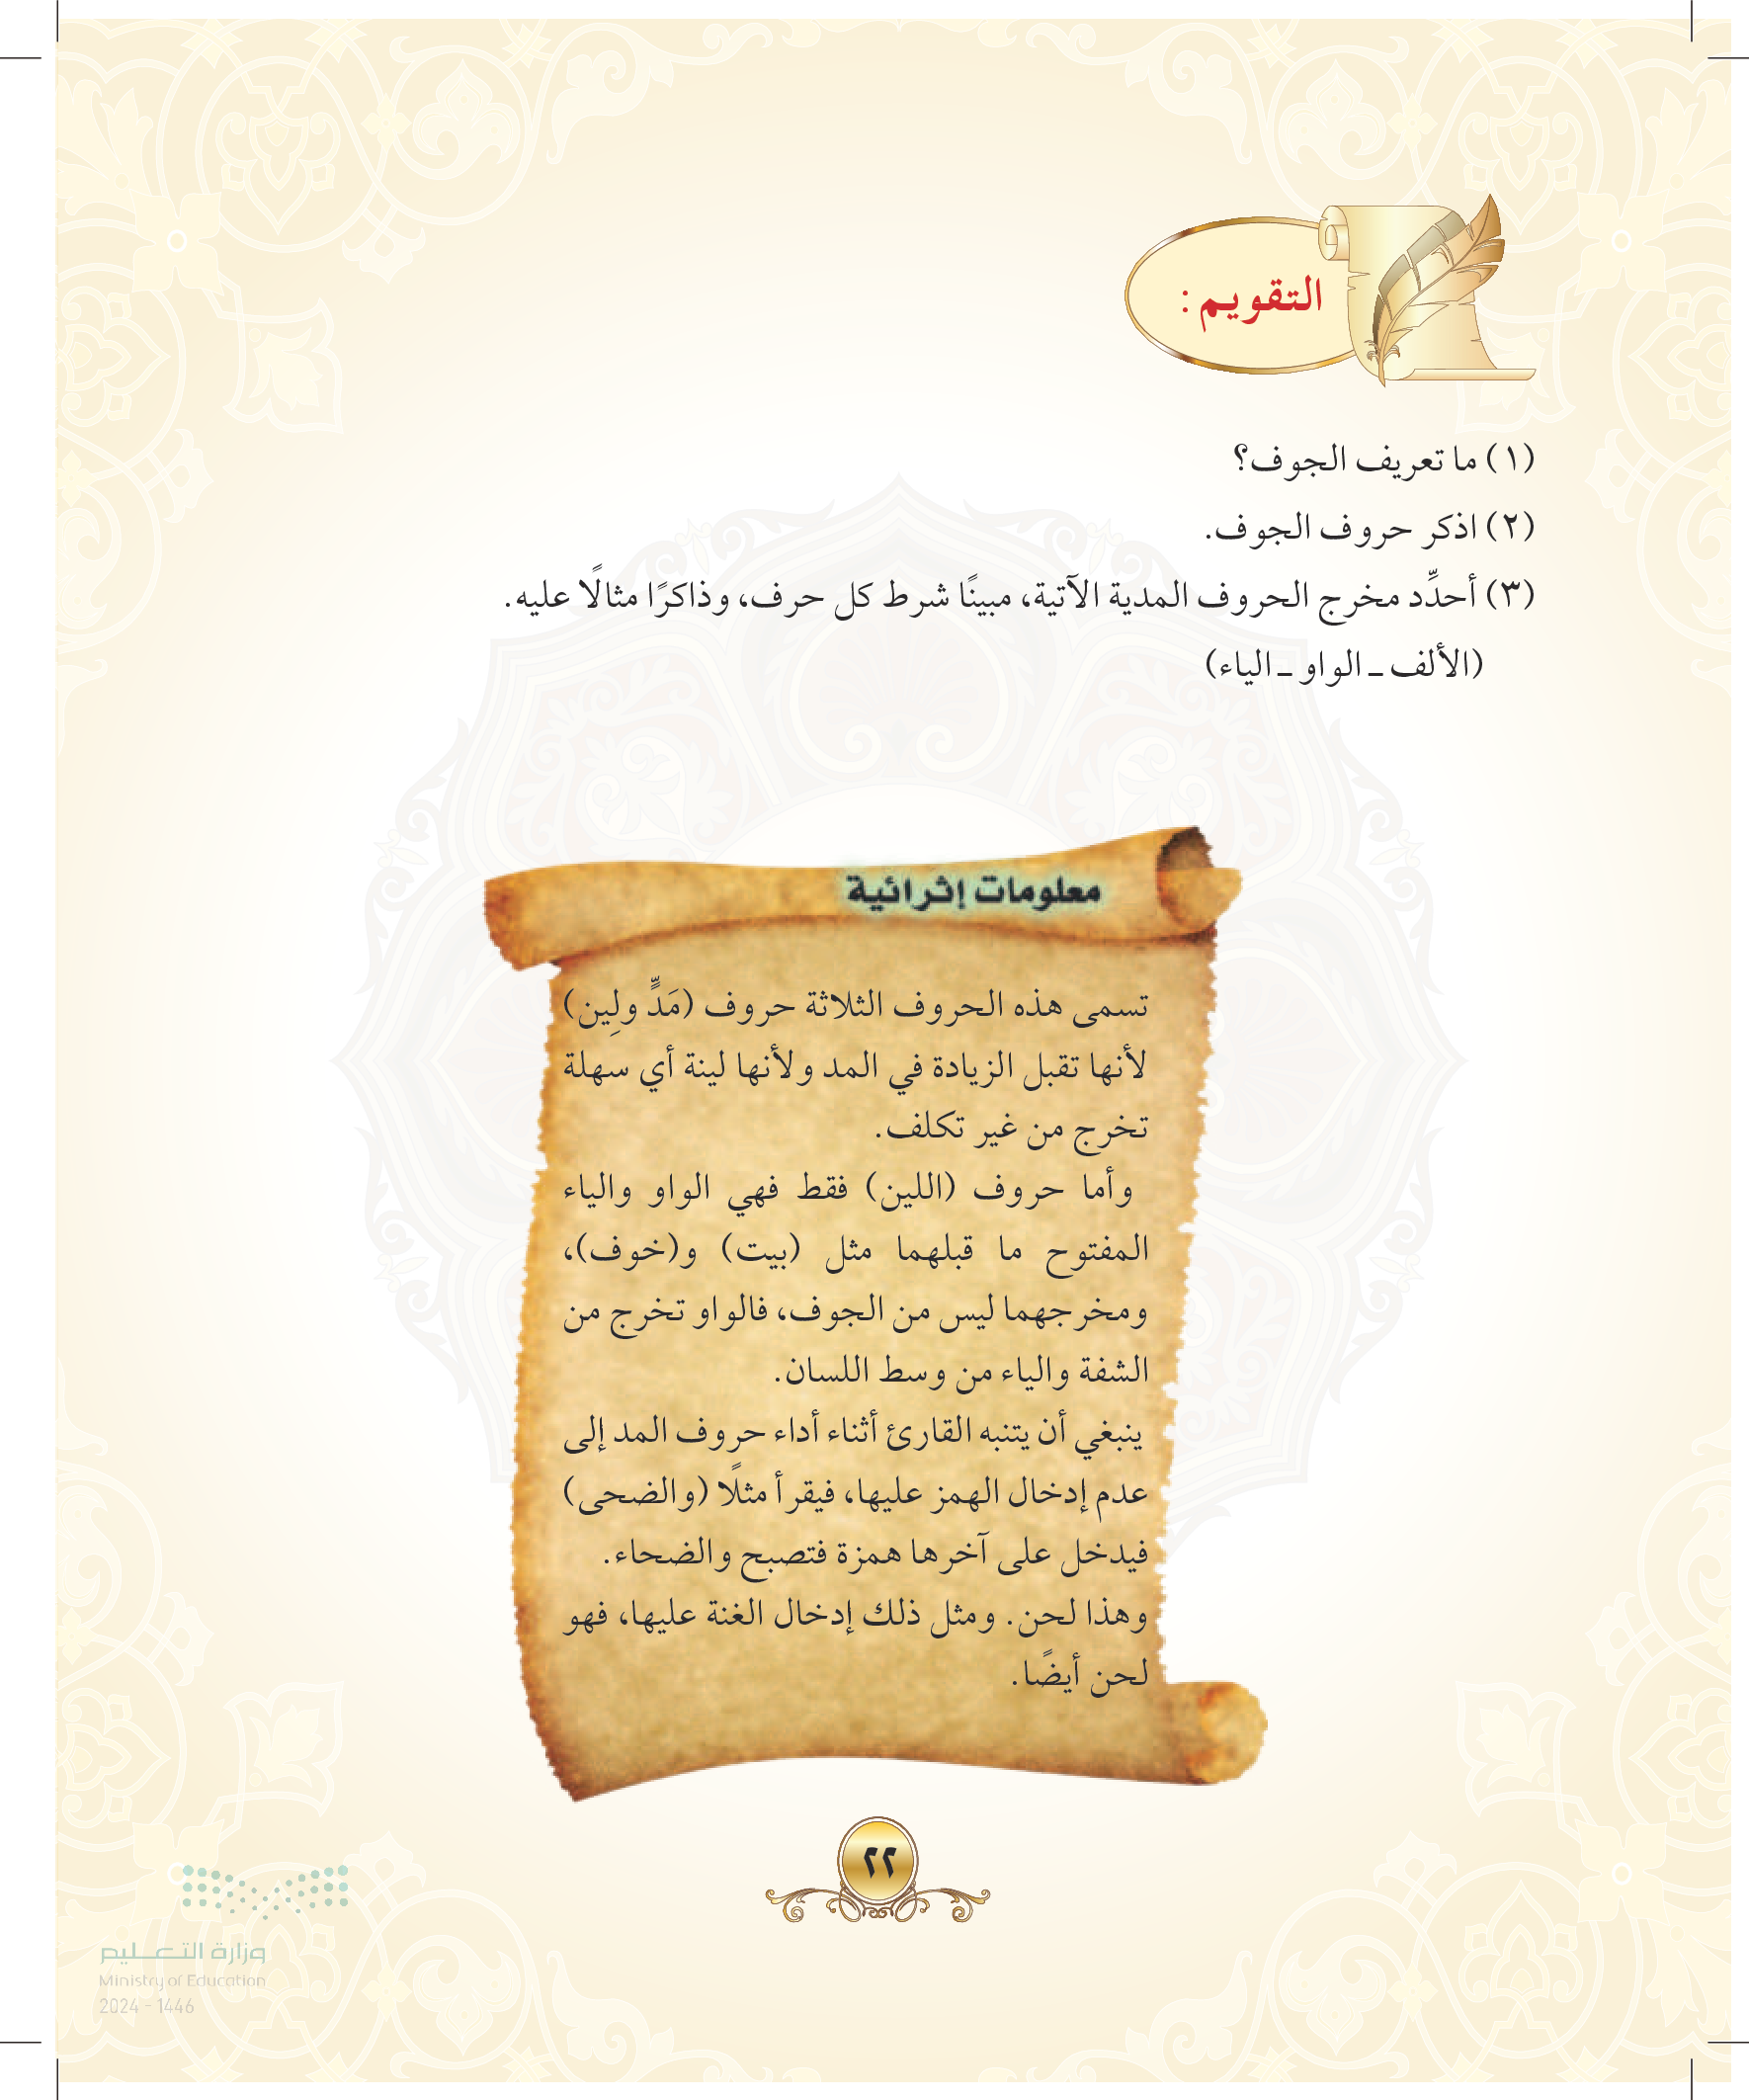 التقويم :
(١) ما تعريف الجوف؟
(٢) اذكر حروف الجوف.
(٣) أحدِّد مخرج الحروف المدية الآتية، مبينًا شرط كل حرف، وذاكرًا مثالًا عليه.
(الألف ـ الواو ـ الياء)
معلومات إثرائية
تسمى هذه الحروف الثلاثة حروف (مَدٍّ ولِين)
لأنها تقبل الزيادة في المد ولأنها لينة أي سهلة
تخرج من غير تكلف.
وأما حروف (اللين) فقط فهي الواو والياء
المفتوح ما قبلهما مثل (بيت) و(خوف)،
ومخرجهما ليس من الجوف، فالواو تخرج من
الشفة والياء من وسط اللسان.
ينبغي أن يتنبه القارئ أثناء أداء حروف المد إلى
عدم إدخال الهمز عليها، فيقرأ مثلًا (والضحى)
فيدخل على آخرها همزة فتصبح والضحاء.
وهذا لحن. ومثل ذلك إدخال الغنة عليها، فهو
لحن أيضًا.
٢٢
وزارة التعـــليم
Ministry of Education
2024 - 1446